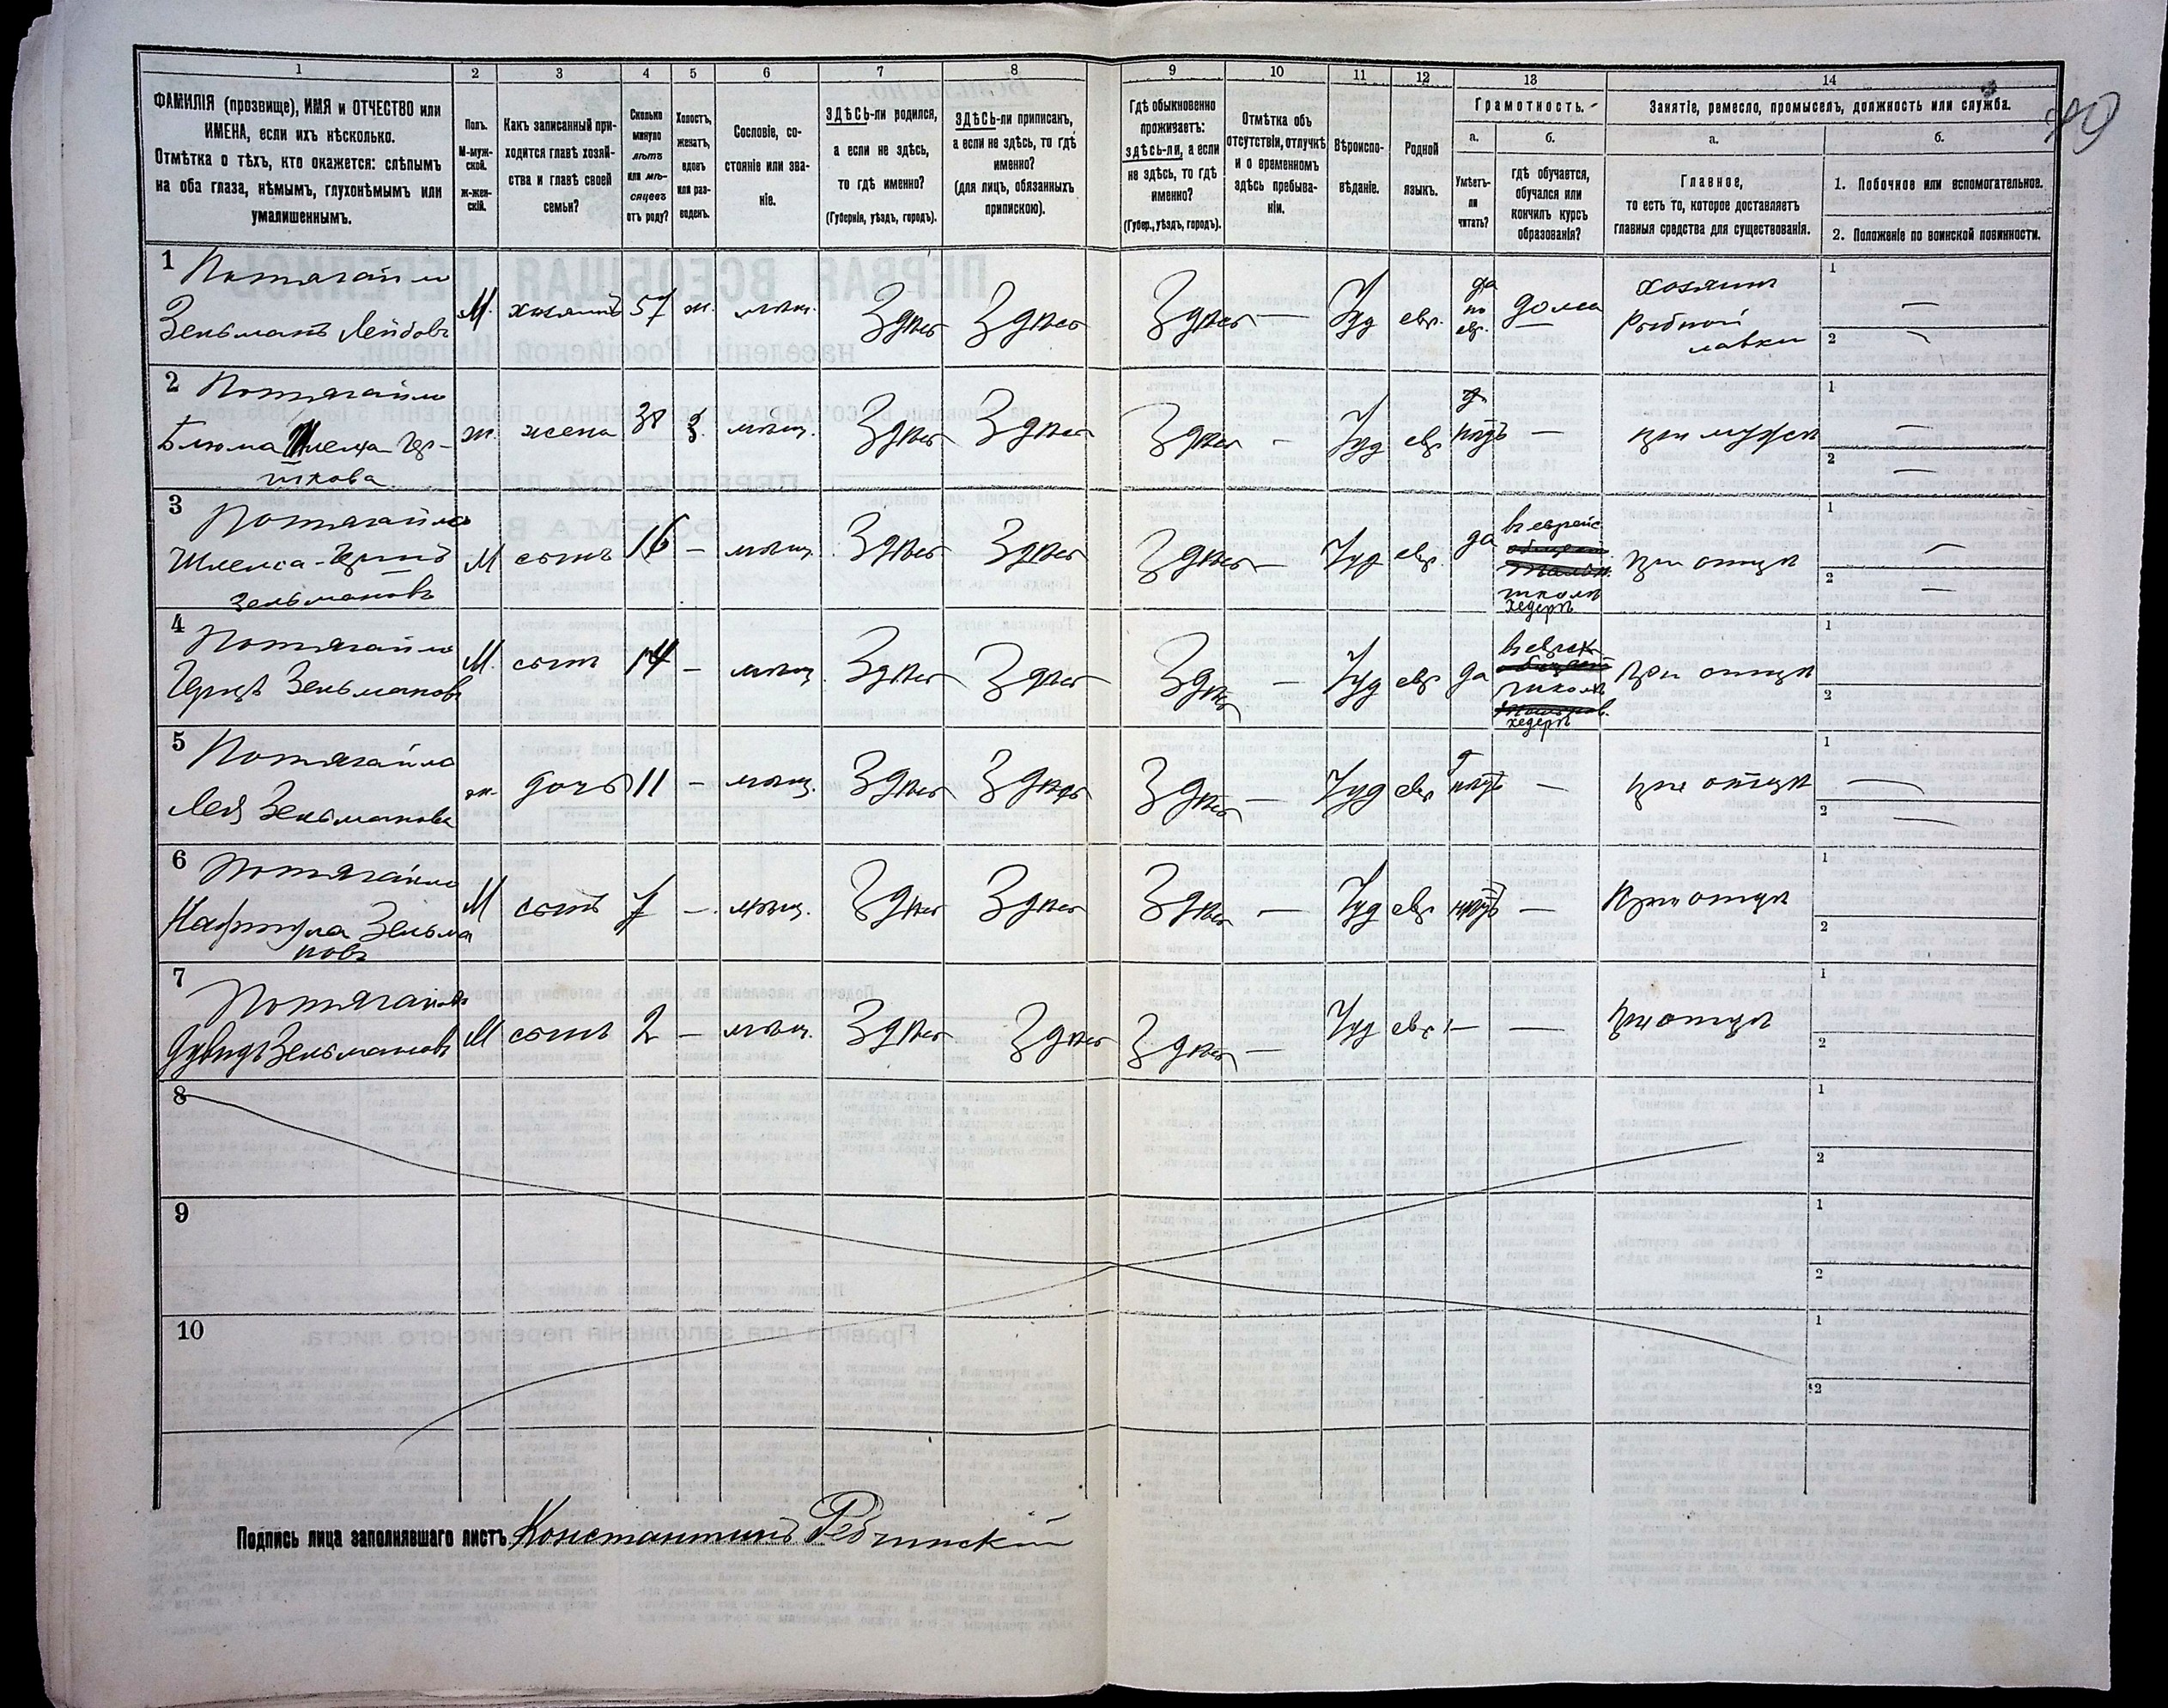 1 2 3 4 5 6 7 8 9 10 11 12 13 14
ФАМИЛІЯ (прозвище), ИМЯ и ОТЧЕСТВО или
ИМЕНА, если ихъ нѣсколько.
Отмѣтка о тѣхъ, кто окажется: слѣпымъ
на оба глаза, нѣмымъ, глухонѣмымъ или
умалишеннымъ.
Полъ.
М-муж-
ской.
ж-жен-
скій.
Какъ записанный при-
ходится главѣ хозяй-
ства и главѣ своей
семьи?
Сколько
минуло
лѣтъ
или мѣ-
сяцевъ
отъ роду?
Холостъ,
женатъ,
вдовъ
или раз-
веденъ.
Сословіе, со-
стояніе или зва-
ніе.
ЗДѢСЬ-ли родился,
а если не здѣсь,
то гдѣ именно?
(Губернія, уѣздъ, городъ).
ЗДѢСЬ-ли приписанъ,
а если не здѣсь, то гдѣ
именно?
(для лицъ, обязанныхъ
припискою).
Гдѣ обыкновенно
проживаетъ:
здѣсь-ли, а если
не здѣсь, то гдѣ
именно?
(Губер., уѣздъ, городъ).
Отмѣтка объ
отсутствіи, отлучкѣ
и о временномъ
здѣсь пребыва-
ніи.
Вѣроиспо-
вѣданіе.
Родной
языкъ.
Грамотность.
а.
Умѣетъ-
ли
читать?
б.
гдѣ обучается,
обучался или
кончилъ курсъ
образованія?
Занятіе, ремесло, промыселъ, должность или служба.
а.
Главное,
то есть то, которое доставляетъ
главныя средства для существованія.
б.
1. Побочное или вспомогательное.
2. Положеніе по воинской повинности.
1 Потягайло
Зельманъ Лейбовъ
М. хозяинъ 57 ж. мѣщ. Здѣсь Здѣсь Здѣсь — Іуд евр. да по евр. дома
хозяинъ
Рыбной
лавки
1 —
2 —
2 Потягайло
Блюма Гер-
шкова
ж. жена 38 З. мѣщ. Здѣсь Здѣсь Здѣсь - Іуд евр нѣтъ — при мужѣ
1 —
2 —
3 Потягайло
Шлема-
Зельмановъ
М сынъ 16 — мѣщ. Здѣсь Здѣсь Здѣсь — Іуд евр. да
въ еврейс.
школѣ
хедерѣ
при отцѣ
1 —
2 —
4 Потягайло
Герцъ Зельмановъ
М. сынъ 14 — мѣщ. Здѣсь Здѣсь Здѣсь — Іуд евр да
въ еврск
школѣ
хедерѣ
При отцѣ
1
2
5 Потягайло
Лея Зельманова
ж. дочь 11 — мѣщ. Здѣсь Здѣсь Здѣсь — Іуд евр нѣтъ — при отцѣ
1 —
2 —
6 Потягайло
Нафтула Зельма
новъ
М сынъ 7 — мѣщ. Здѣсь Здѣсь Здѣсь — Іуд евр нѣтъ — При отцѣ
1
2
7 Потягайло
Дувидъ Зельмановъ
М сынъ 2 — мѣщ. Здѣсь Здѣсь Здѣсь — Іуд евр. — — При отцѣ
1
2
8
1
2
9
1
2
10
1
2
Подпись лица заполнявшаго листъ Константинъ